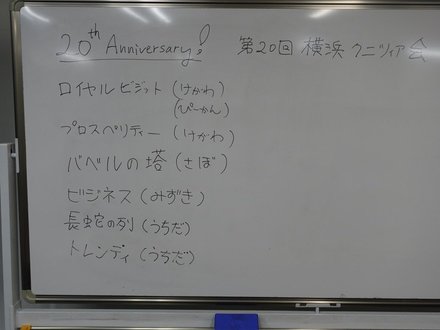 20th Anniversary!
第20回 横浜クニツィア会
ロイヤルビジット(けがわ)
(ぴーかん)
プロスペリティー(けがわ)
バベルの塔(さぼ)
ビジネス(みずき)
長蛇の列(うちだ)
トレンディ(うちだ)